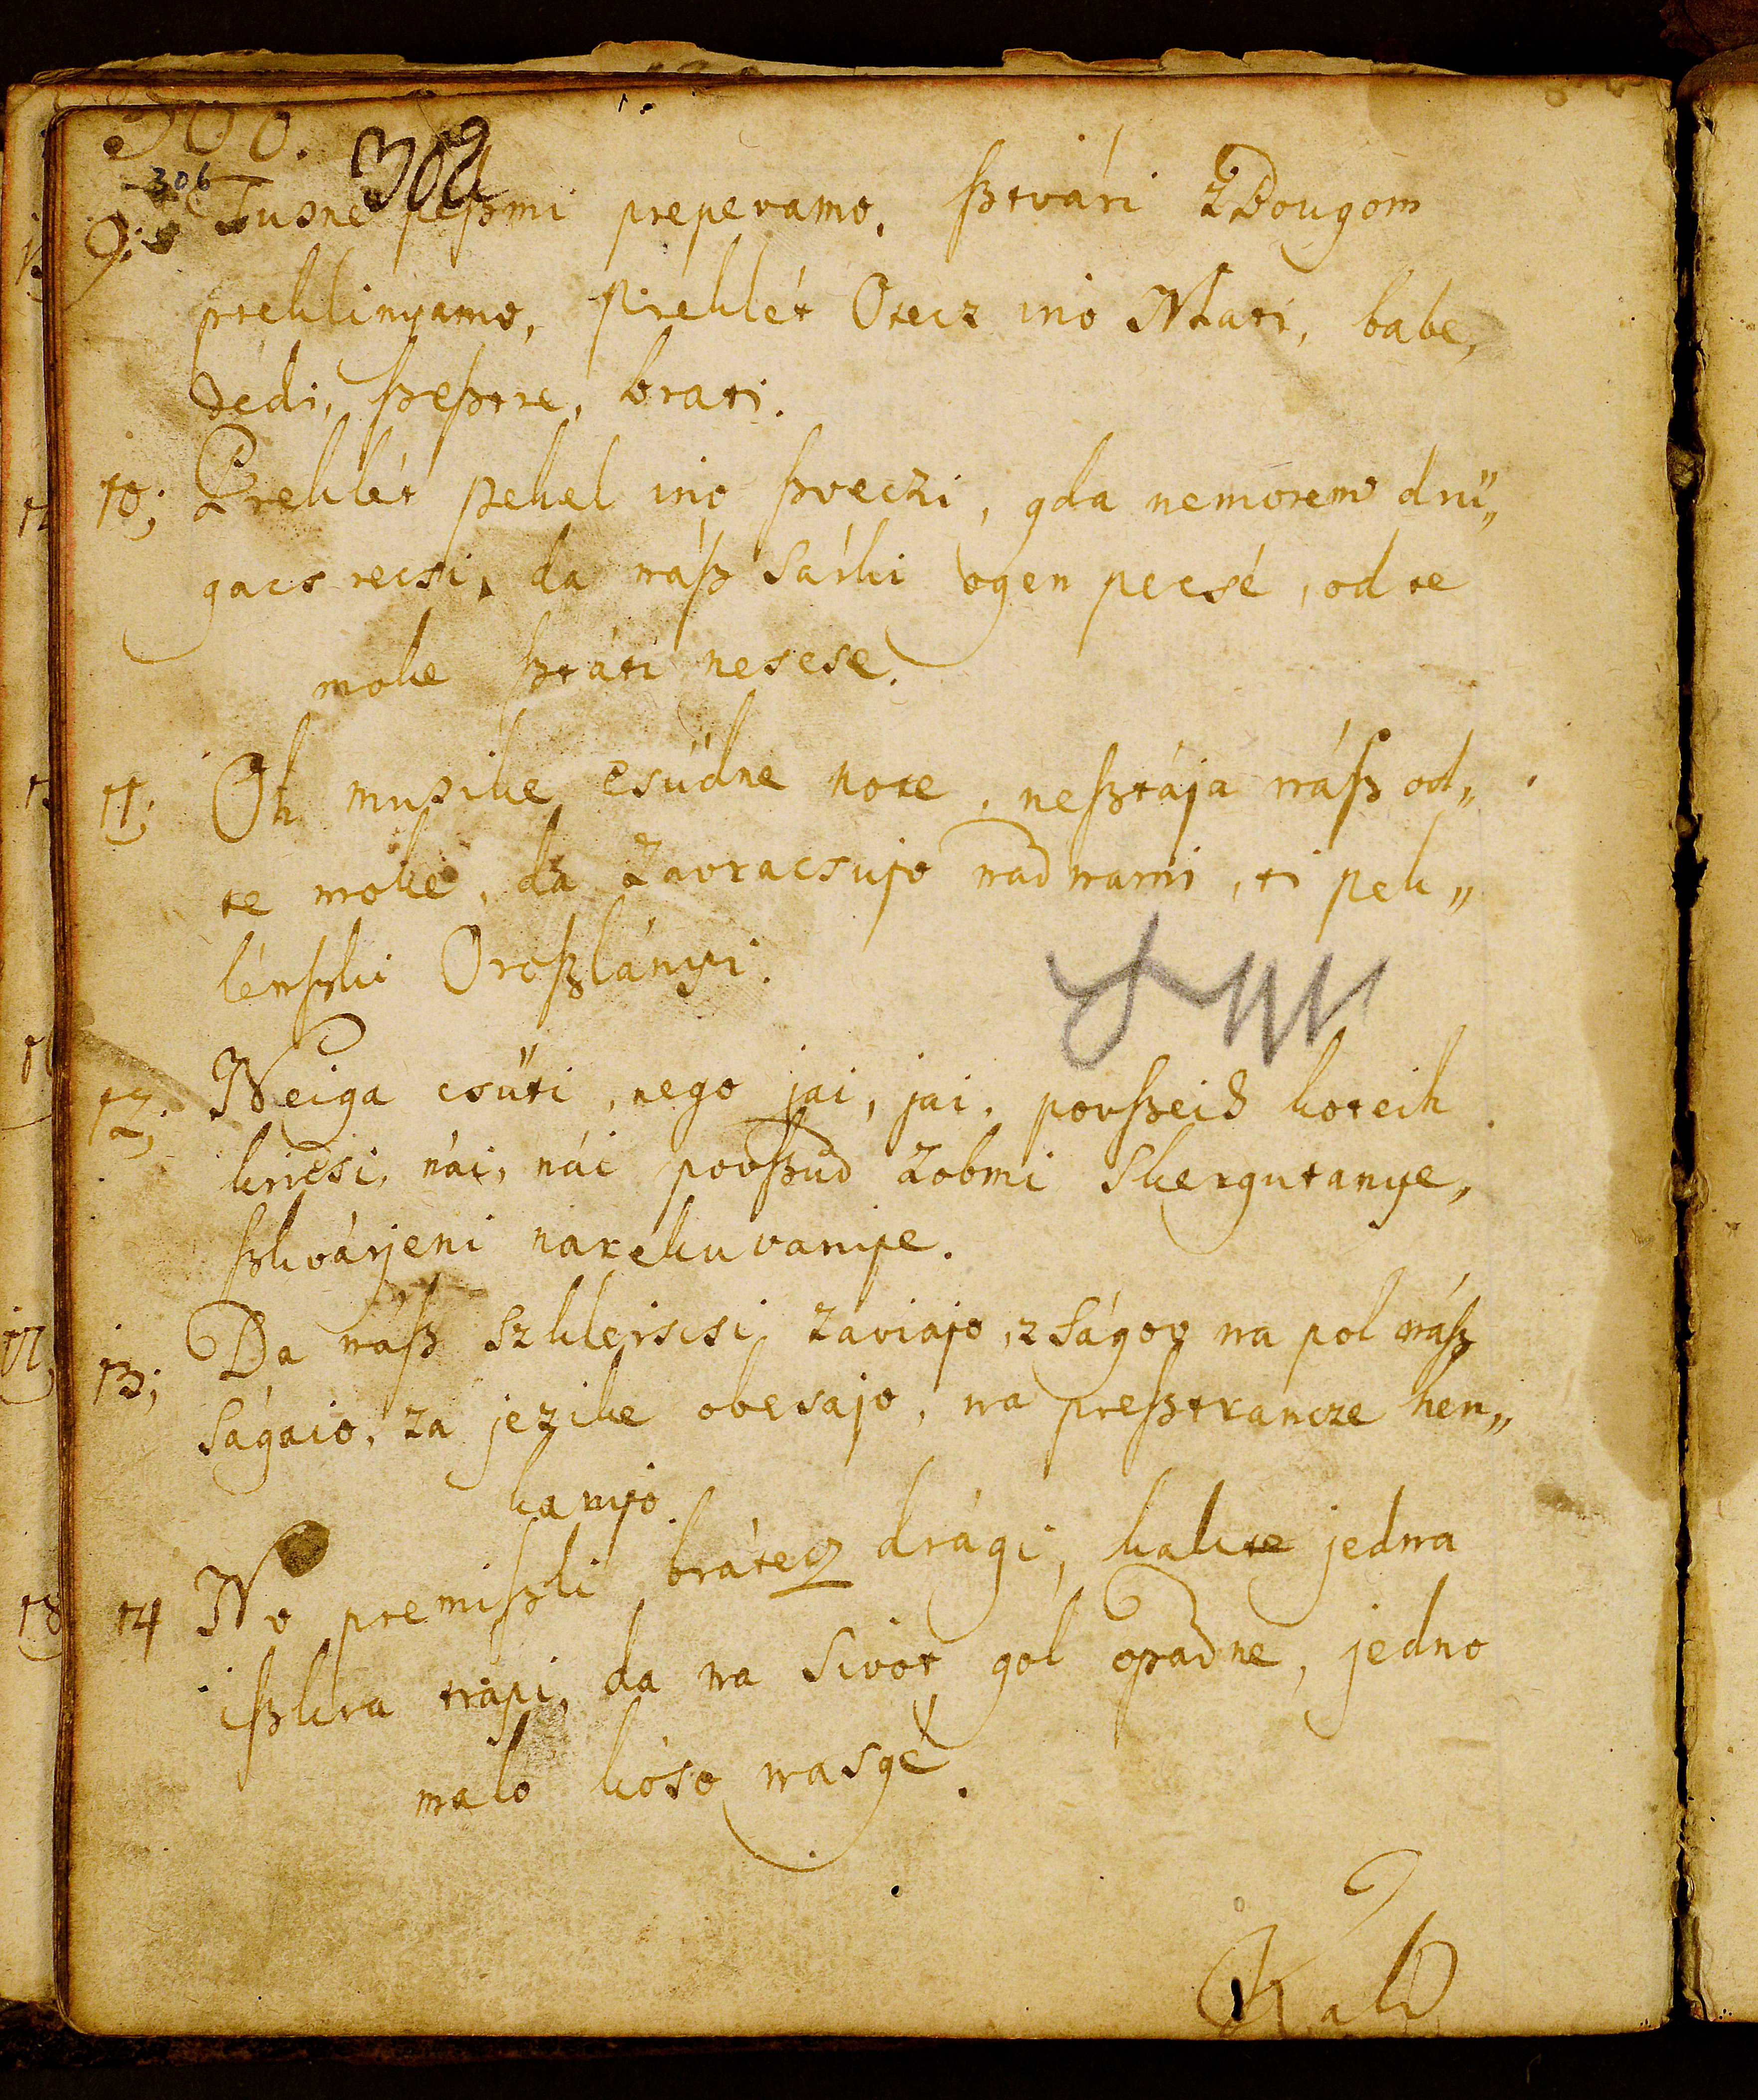 308.
306 302
9. Tusne peßmi prepevamo, ßtvári z Bougom
preklinyamo, Preklét Otecz ino Mati, babe,
dedi, ßeßtre, brati.
10; Preklét pekel ino ßveczi, gda nemorem drü„
gacs recsi, da náß sárki ogen pecsé, od te
moke ßtáti nescse.
11; Oh musike csüdne note, neßtája náß od„
te moke, da zavracsujo nad nami, ti pek„
lénßki Oroßlányi.
12; Neiga csüti, nego jai, jai, povßeid koteih
kricsi, nái, nái povßud zobmi skergutanye,
ßkvárjeni narékuvanye.
13; Da náß szklejscsi zaviajo, z ságov na pol náß
ságaio, za jezike obesajo, na preßtrancze hen„
kanijo.
14 No premißli brátecz drági, kakte jedna
ißkra trápi, da na sivot gol opadne, jedno
malo kóso nasgé.
Kak